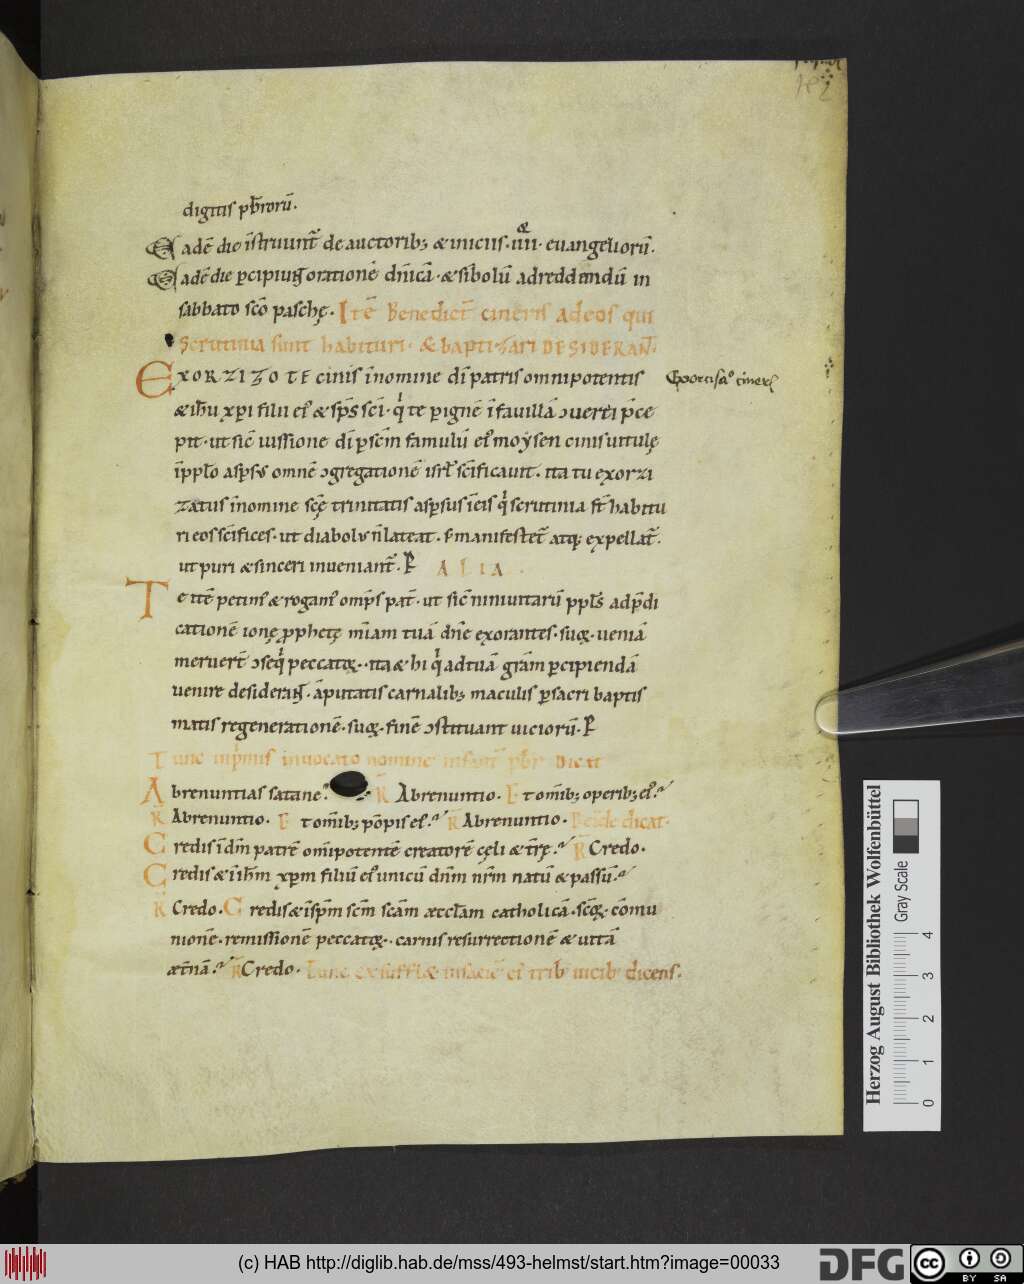 digitis p̄bꝛorū.
Eadē die īstruunt̄ de auctorib; & iniciis· iiii· euangeliorū.
Eadē die ꝑcipiunt orationē dn̄icā· & sı̄bolū ad reddendū in
sabbato sc̄o paschę. Itē Benedict̄ cineris ad eos qui
Scrutinia sunt habituri· & baptizari DESIDERANT.
EXORZIZO TE cinis īnomine dı̄ patris omnipotentis
& ih̄u xp̄i filii ei᷒ & sp̄s sc̄i· qͥ te ꝑ ignē ī fauillā ɔuerti p̄ce
pit· ut sic̄ iussione dı̄ ꝑ sc̄m famulū ei᷒ moẏsen cinis uitulę
īpp̄lo aspers᷒ omnē ɔgregationē isrl̄ sc̄ificauit· ita tu exorzi
zatus īnomine sc̄ę trinitatis asꝑsus īeis qͥ scrutinia st̄ habitu
ri eos sc̄ifices· ut diabolus n̄ lateat· s; manifestet̄ atq; expellat̄·
ut puri & sinceri inueniant̄· P ALIA
Te itē petim᷒ & rogam᷒ omp̄s pat̄· ut sic̄ niniuitarū pp̄ls̄ ad p̄di
cationē ionę ꝓphetę mı̄am tuā dn̄e exorantes· suoꝝ· ueniā
meruert̄ ɔseqͥ peccatoꝝ·· ita & hi qͥ ad tuā grām ꝑcipiendā
uenire desiderant· āputatis carnalib; maculis ꝑ sacri baptis
matis regenerationē· suoꝝ· finē ɔstituant uiciorū· P
Tunc inp̄mis inuocato nomine infant̄ p̄br dicit
Abrenuntias satane? R Abrenuntio. Et om̄ib; operib; ei᷒?
R Abrenuntio. Et om̄ib; pōpis ei᷒? R Abrenuntio. Deide dicat·
Credis īdm̄ patrē om̄ipotentē creatorē cęli & tr̄ę? R Credo.
Credis & īih̄m xp̄m filiū ei᷒ unicū dn̄m nr̄m natū & passū?
R Credo. Credis & īsp̄m sc̄m scām æcclam catholicā· sc̄oꝝ· cōmu
nionē· remissionē peccatoꝝ·· carnis resurrectionē & uitā
æt̄nā? R Credo. Tunc exsufflæ infaciē ei᷒ trib᷒ uicib᷒ dicens.
Exorcisāͦ cineris
Herzog August Bibliothek Wolfenbüttel
Gray Scale
0 1 2 3 4
(c) HAB http://diglib.hab.de/mss/493-helmst/start.htm?image=00033
DFG
cc BY SA